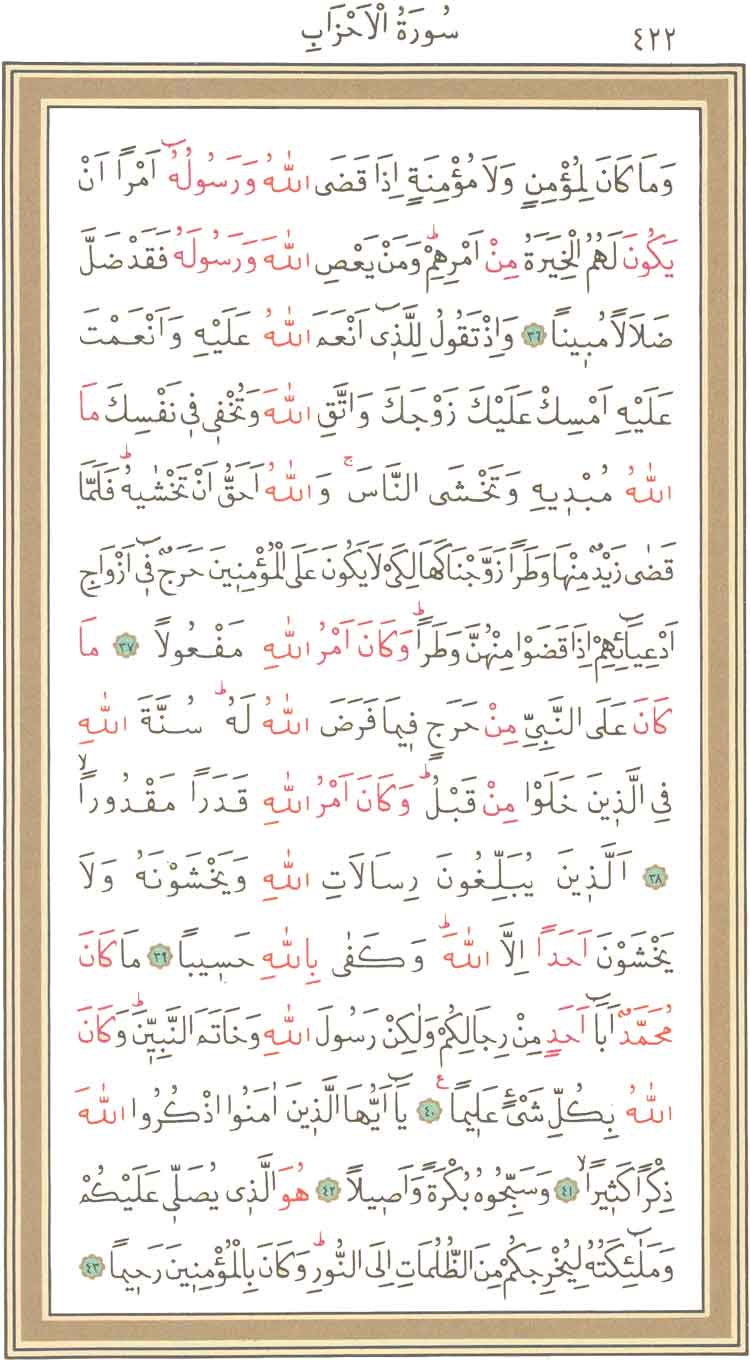 سُورَةُ الْاَحْزَابِ ٤٢٢
وَمَا كَانَ لِمُؤْمِنٍ وَلَا مُؤْمِنَةٍ اِذَا قَضَى اللّٰهُ وَرَسُولُهُٓ اَمْراً اَنْ
يَكُونَ لَهُمُ الْخِيَرَةُ مِنْ اَمْرِهِمْۜ وَمَنْ يَعْصِ اللّٰهَ وَرَسُولَهُ فَقَدْ ضَلَّ
ضَلَالاً مُب۪يناً ﴿٣٦﴾ وَاِذْ تَقُولُ لِلَّذ۪ٓي اَنْعَمَ اللّٰهُ عَلَيْهِ وَاَنْعَمْتَ
عَلَيْهِ اَمْسِكْ عَلَيْكَ زَوْجَكَ وَاتَّقِ اللّٰهَ وَتُخْف۪ي ف۪ي نَفْسِكَ مَا
اللّٰهُ مُبْد۪يهِ وَتَخْشَى النَّاسَۚ وَاللّٰهُ اَحَقُّ اَنْ تَخْشٰيهُۜ فَلَمَّا
قَضٰى زَيْدٌ مِنْهَا وَطَراً زَوَّجْنَاكَهَا لِكَيْ لَا يَكُونَ عَلَى الْمُؤْمِن۪ينَ حَرَجٌ ف۪ٓي اَزْوَاجِ
اَدْعِيَٓائِهِمْ اِذَا قَضَوْا مِنْهُنَّ وَطَراًۜ وَكَانَ اَمْرُ اللّٰهِ مَفْعُولاً ﴿٣٧﴾ مَا
كَانَ عَلَى النَّبِيِّ مِنْ حَرَجٍ ف۪يمَا فَرَضَ اللّٰهُ لَهُۜ سُنَّةَ اللّٰهِ
فِي الَّذ۪ينَ خَلَوْا مِنْ قَبْلُۜ وَكَانَ اَمْرُ اللّٰهِ قَدَراً مَقْدُوراًۙ
﴿٣٨﴾ اَلَّذ۪ينَ يُبَلِّغُونَ رِسَالَاتِ اللّٰهِ وَيَخْشَوْنَهُ وَلَا
يَخْشَوْنَ اَحَداً اِلَّا اللّٰهَۜ وَكَفٰى بِاللّٰهِ حَس۪يباً ﴿٣٩﴾ مَا كَانَ
مُحَمَّدٌ اَبَٓا اَحَدٍ مِنْ رِجَالِكُمْ وَلٰكِنْ رَسُولَ اللّٰهِ وَخَاتَمَ النَّبِيّ۪نَۜ وَكَانَ
اللّٰهُ بِكُلِّ شَيْءٍ عَل۪يماً۟ ﴿٤٠﴾ يَٓا اَيُّهَا الَّذ۪ينَ اٰمَنُوا اذْكُرُوا اللّٰهَ
ذِكْراً كَث۪يراًۙ ﴿٤١﴾ وَسَبِّحُوهُ بُكْرَةً وَاَص۪يلاً ﴿٤٢﴾ هُوَ الَّذ۪ي يُصَلّ۪ي عَلَيْكُمْ
وَمَلٰٓئِكَتُهُ لِيُخْرِجَكُمْ مِنَ الظُّلُمَاتِ اِلَى النُّورِۜ وَكَانَ بِالْمُؤْمِن۪ينَ رَح۪يماً ﴿٤٣﴾